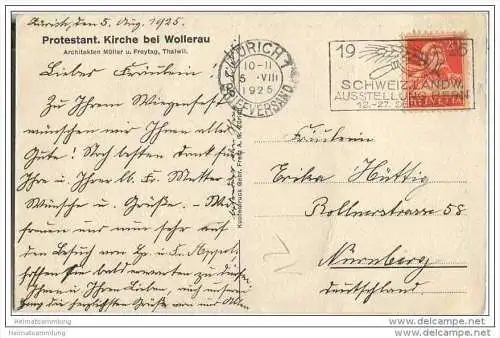 Zürich, den 5. Aug. 1925.
Protestant. Kirche bei Wollerau
Architekten Müller u. Freytag, Thalwil.
Liebes Fräulein!
Zu Ihrem Wiegenfest
wünschen wir Ihnen alles
Gute! Noch besten Dank für
Ihre u. Ihrer lb. Fr. Mutter
Wünsche u. Grüsse. Wir
freuen uns nun sehr auf
den Besuch von Hr. u. Fr.
hoffen bald erwarten zu dürfen
Ihnen u. Ihren Lieben, auch
die herzlichsten Grüsse von uns Allen
Kupferdruck Gebr. Fretz A. G. Zürich
ZÜRICH 1
10-11
5 · VIII
1925
BRIEFVERSAND
19 25
SCHWEIZ. LANDW.
AUSSTELLUNG BERN
12.-27.
20
HELVETIA
Fräulein
Erika Hüttig
Rollnerstrasse 58
Nürnberg
Deutschland.
Heimatsammlung
Heimatsammlung
www.delcampe.net
www.delcampe.net